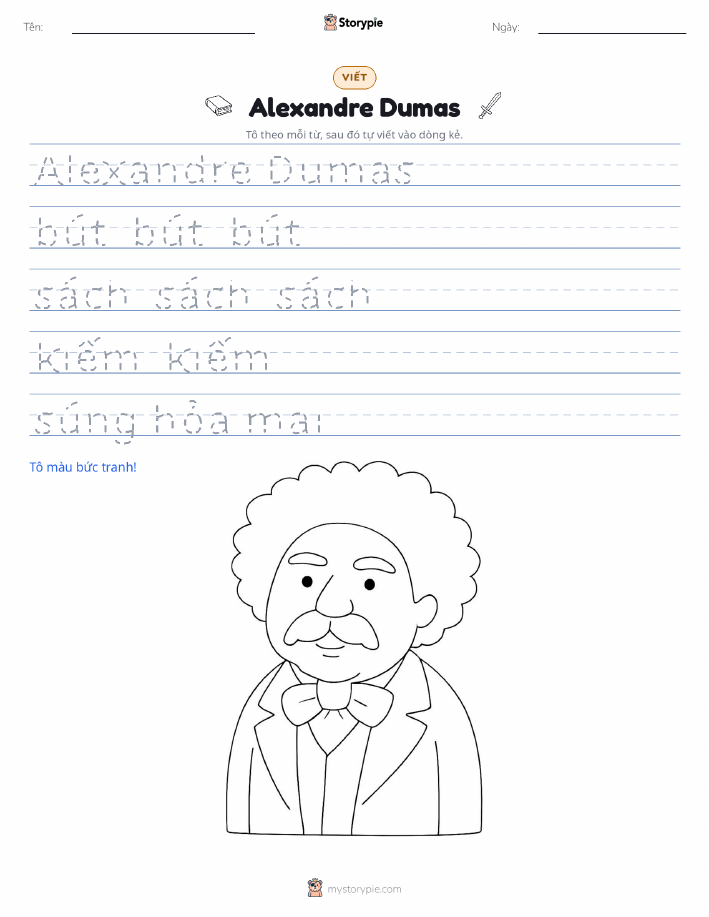 Tên: Storypie Ngày:
VIẾT
Alexandre Dumas
Tô theo mỗi từ, sau đó tự viết vào dòng kẻ.
Alexandre Dumas
bút bút bút
sách sách sách
kiếm kiếm
súng hỏa mai
Tô màu bức tranh!
mystorypie.com